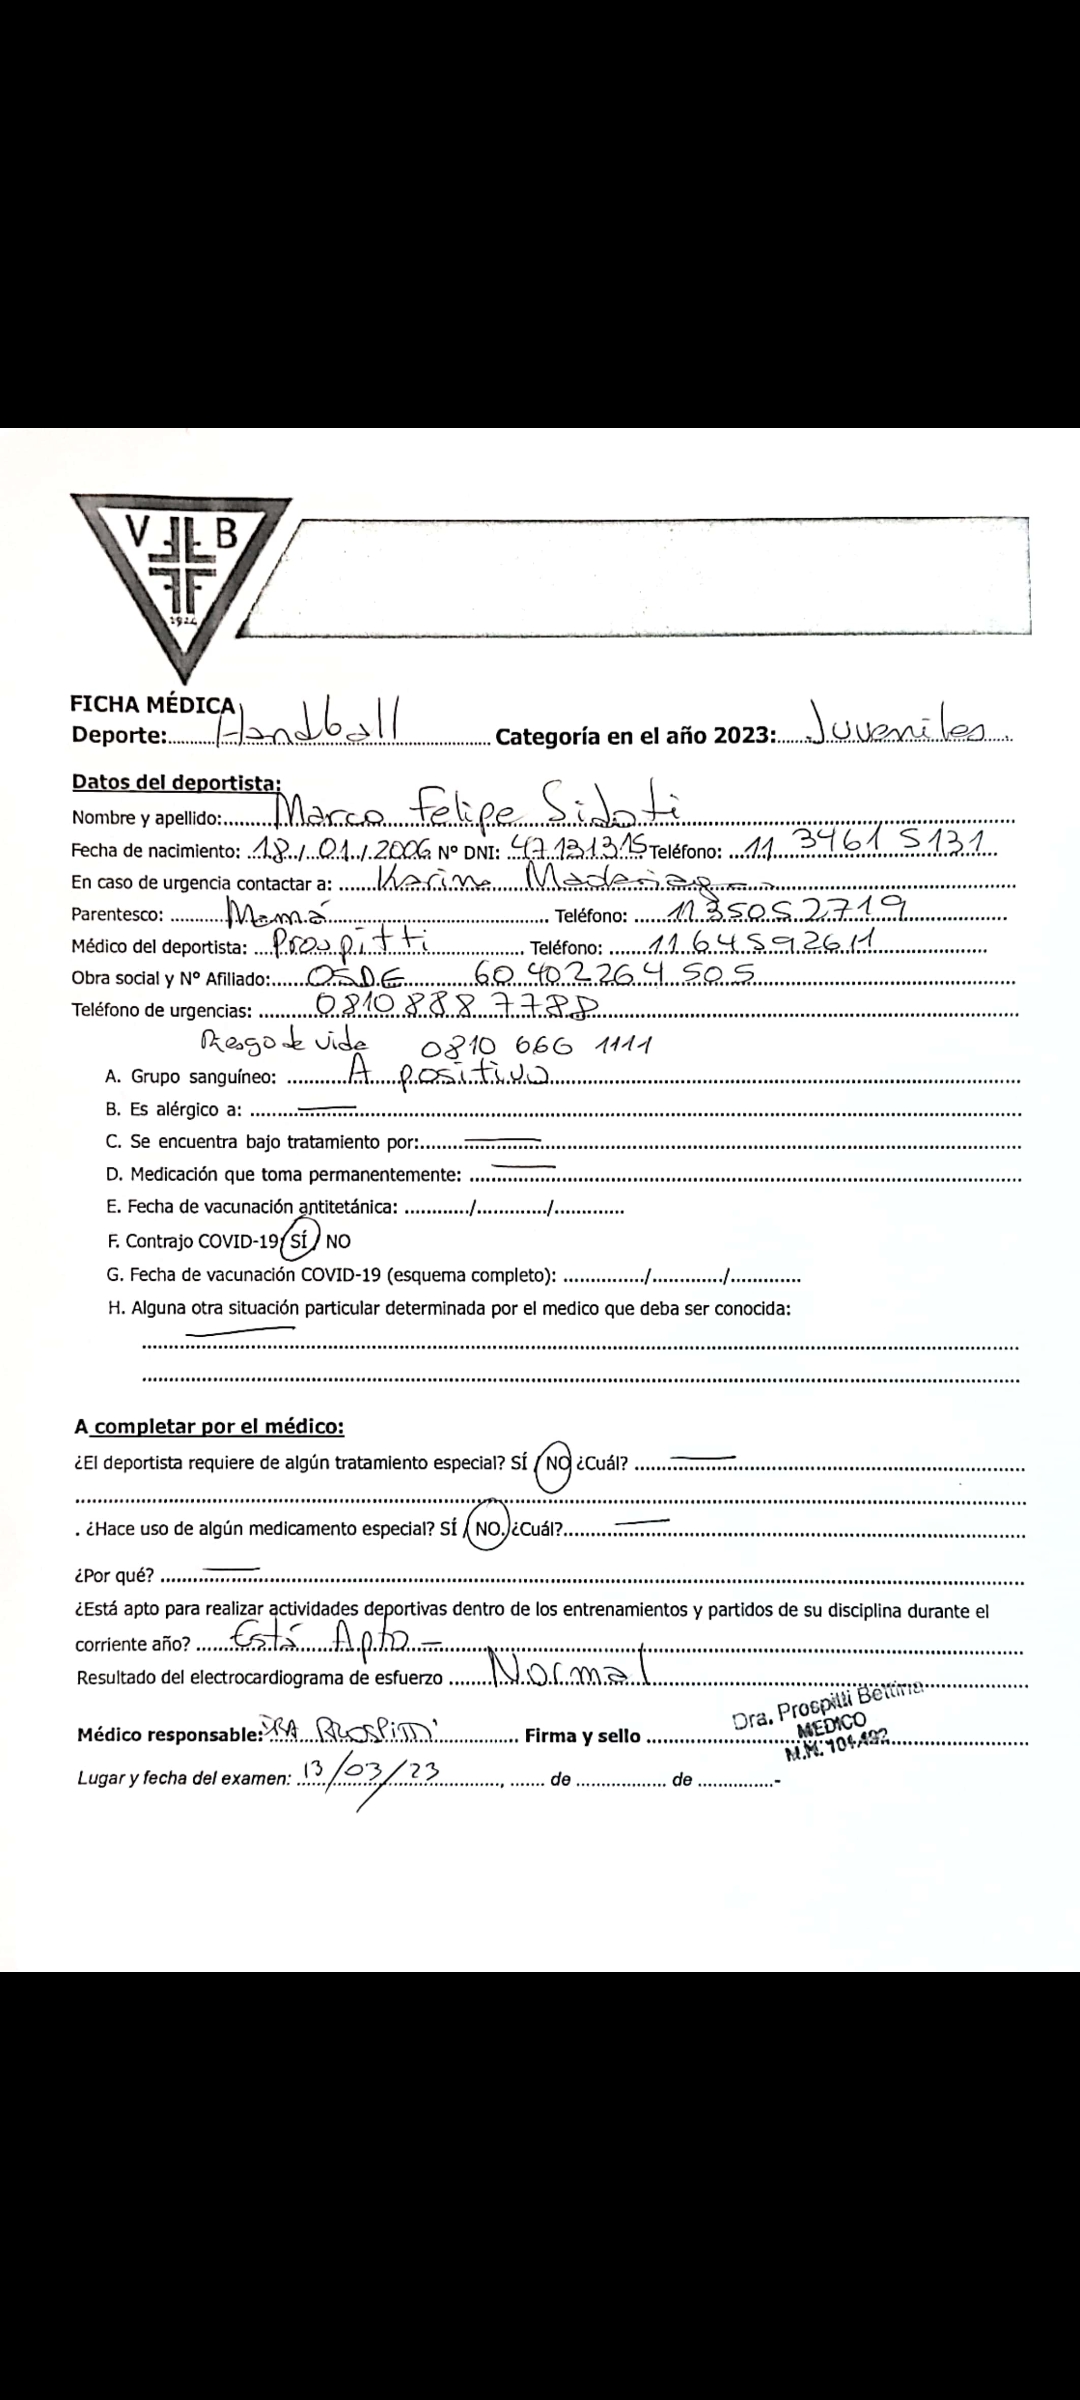 V B
1924
FICHA MÉDICA
Deporte: Handball Categoría en el año 2023: Juveniles
Datos del deportista:
Nombre y apellido: Marco Felipe Sidoti
Fecha de nacimiento: 18/01/2006 Nº DNI: 47131315 Teléfono: 11 3461 5131
En caso de urgencia contactar a: Karina
Parentesco: Mamá Teléfono: 11 35052719
Médico del deportista: Prospitti Teléfono: 11 64592611
Obra social y Nº Afiliado: OSDE 60 402264 505
Teléfono de urgencias: 0810 888 7788
Riesgo de vida 0810 666 1111
A. Grupo sanguíneo: A positivo
B. Es alérgico a: —
C. Se encuentra bajo tratamiento por: —
D. Medicación que toma permanentemente: —
E. Fecha de vacunación antitetánica: ............/............./.............
F. Contrajo COVID-19: SÍ / NO
G. Fecha de vacunación COVID-19 (esquema completo): ............../............./.............
H. Alguna otra situación particular determinada por el medico que deba ser conocida:
—
A completar por el médico:
¿El deportista requiere de algún tratamiento especial? SÍ / NO ¿Cuál? —
. ¿Hace uso de algún medicamento especial? SÍ / NO. ¿Cuál? —
¿Por qué? —
¿Está apto para realizar actividades deportivas dentro de los entrenamientos y partidos de su disciplina durante el
corriente año? Está Apto —
Resultado del electrocardiograma de esfuerzo Normal
Dra. Prospitti Bettina
Médico responsable: DRA PROSPITTI Firma y sello MEDICO
M.N. 104.492
Lugar y fecha del examen: 13/03/23, ...... de ................. de ...............-